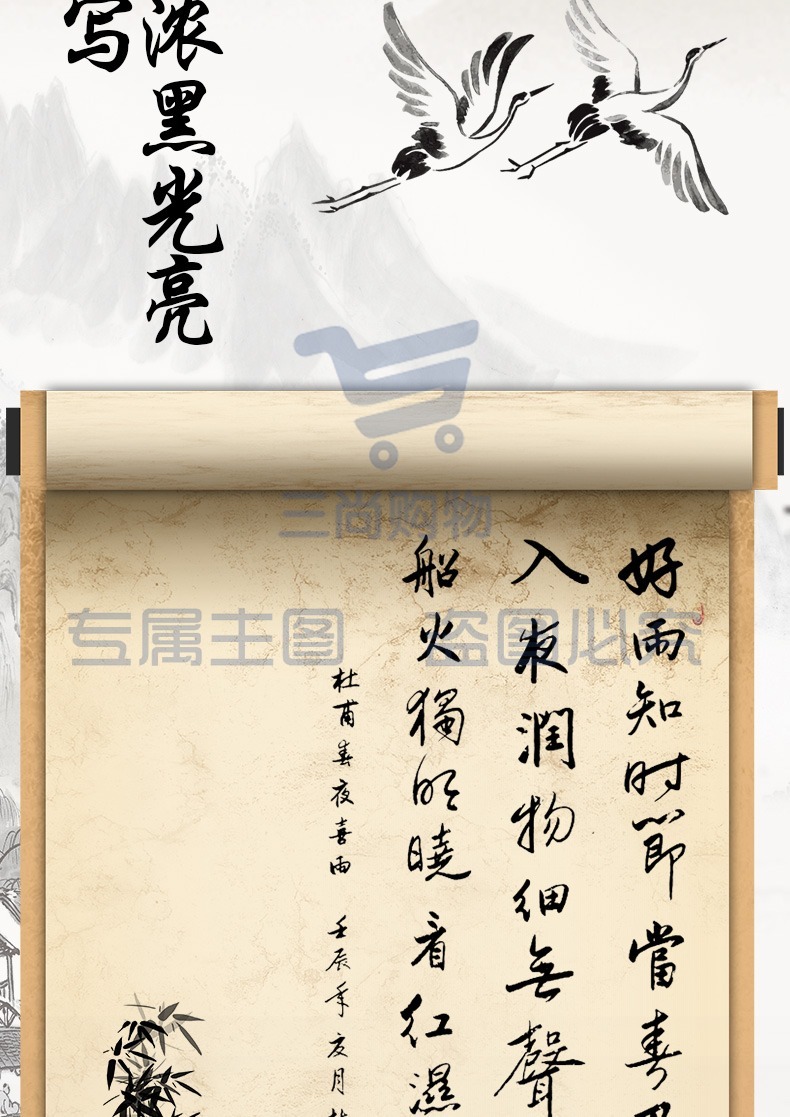 浓黑光亮
写
三尚购物
专属主图 盗图必究
好雨知时節當春
入夜潤物细無聲
船火獨明曉看红濕
杜甫春夜喜雨 壬辰年夜月